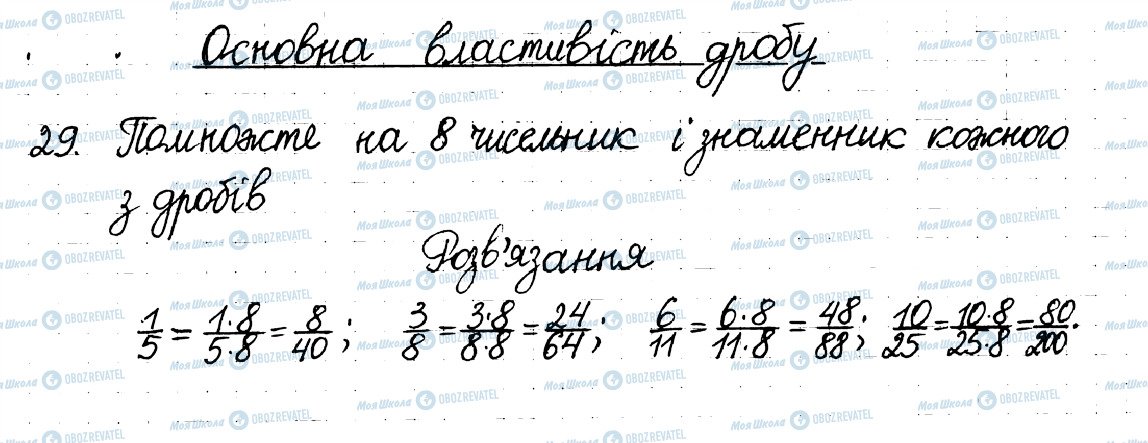 Основна властивість дробу
29. Помножте на 8 чисельник і знаменник кожного
з дробів
Розв'язання
1/5 = 1·8/5·8 = 8/40; 3/8 = 3·8/8·8 = 24/64; 6/11 = 6·8/11·8 = 48/88; 10/25 = 10·8/25·8 = 80/200.
Моя Школа OBOZREVATEL